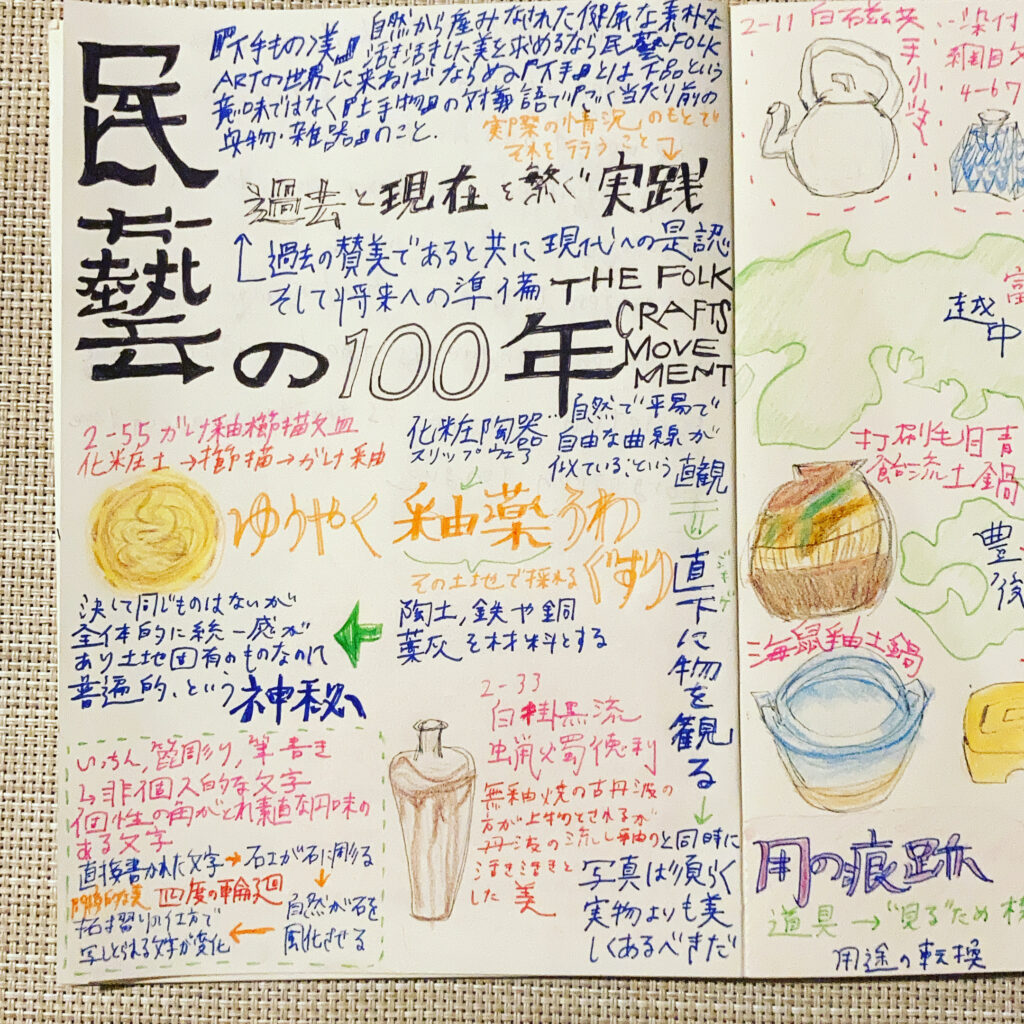 民藝
の100年
『下手もの漫』自然から産みなされた健康な素朴な
活き活きした美を求めるなら民藝FOLK
ARTの世界に来ねばならぬ『下手』とは下品という
意味ではなく『上手物』の対語で『ごく当たり前の
具物・雑器』のこと.
実際の情況のもとで
それを行うこと
過去と現在を繋ぐ実践
過去の賛美であると共に現代への是認
そして将来への準備
THE FOLK
CRAFTS
MOVE
MENT
2-55 がけ釉櫛描文皿
化粧土→櫛描→がけ釉
化粧陶器…
スリップウェア
自然で平易で
自由な曲線が
似ているという直観
ゆうやく 釉薬 うわ
ぐすり
その土地で採れる
陶土,鉄や銅
藁灰を材料とする
決して同じものはないが
全体的に統一感が
あり土地固有のものなのに
普遍的、という
神秘へ
ジキゲ
直下に物を観る
2-33
白掛黒流
蝋燭徳利
無釉焼の古丹波の
方が上物とされるが
丹波の流し釉の
活き活きと
した美
と同時に
写真は須らく
実物よりも美
しくあるべきだ
いっちん,箆彫り,筆書き
↳非個人的な文字
個性の角がとれ素直な丹味の
ある文字
直接書かれた文字→石工が石に彫る
間接的な美 四度の輪廻
自然が石を
風化させる
拓摺りの仕方で
写しとられる文字が変化
2-11 白磁
手
染付
網目文
4-67
富
越中
打刷毛旧青
飴流土鍋
豊後
海鼠釉土鍋
用の痕跡
道具→"見る"ため
用途の転換